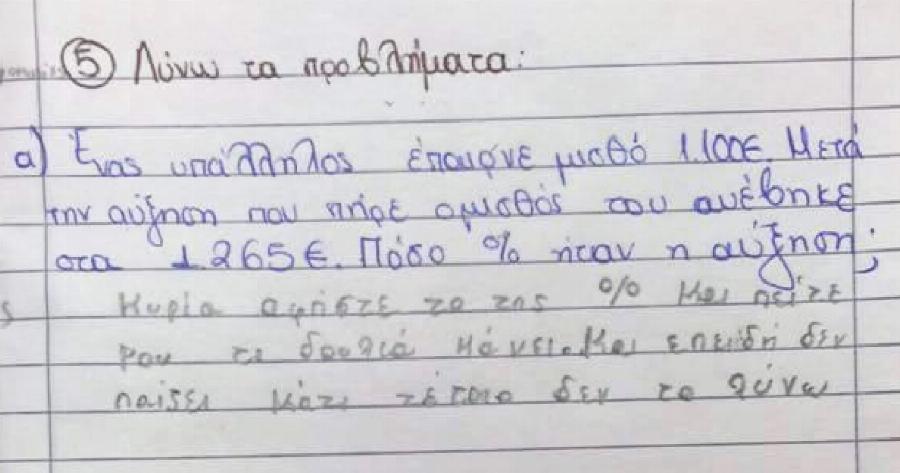 5 Λύνω τα προβλήματα:
α) Ένας υπάλληλος έπαιρνε μισθό 1.100€. Μετά
την αύξηση που πήρε ο μισθός του ανέβηκε
στα 1.265€. Πόσο % ήταν η αύξηση;
Κυρία αφήστε το της % και πείτε
μου τι δουλειά κάνει. Και επειδή δεν
παίζει κάτι τέτοιο δεν το λύνω